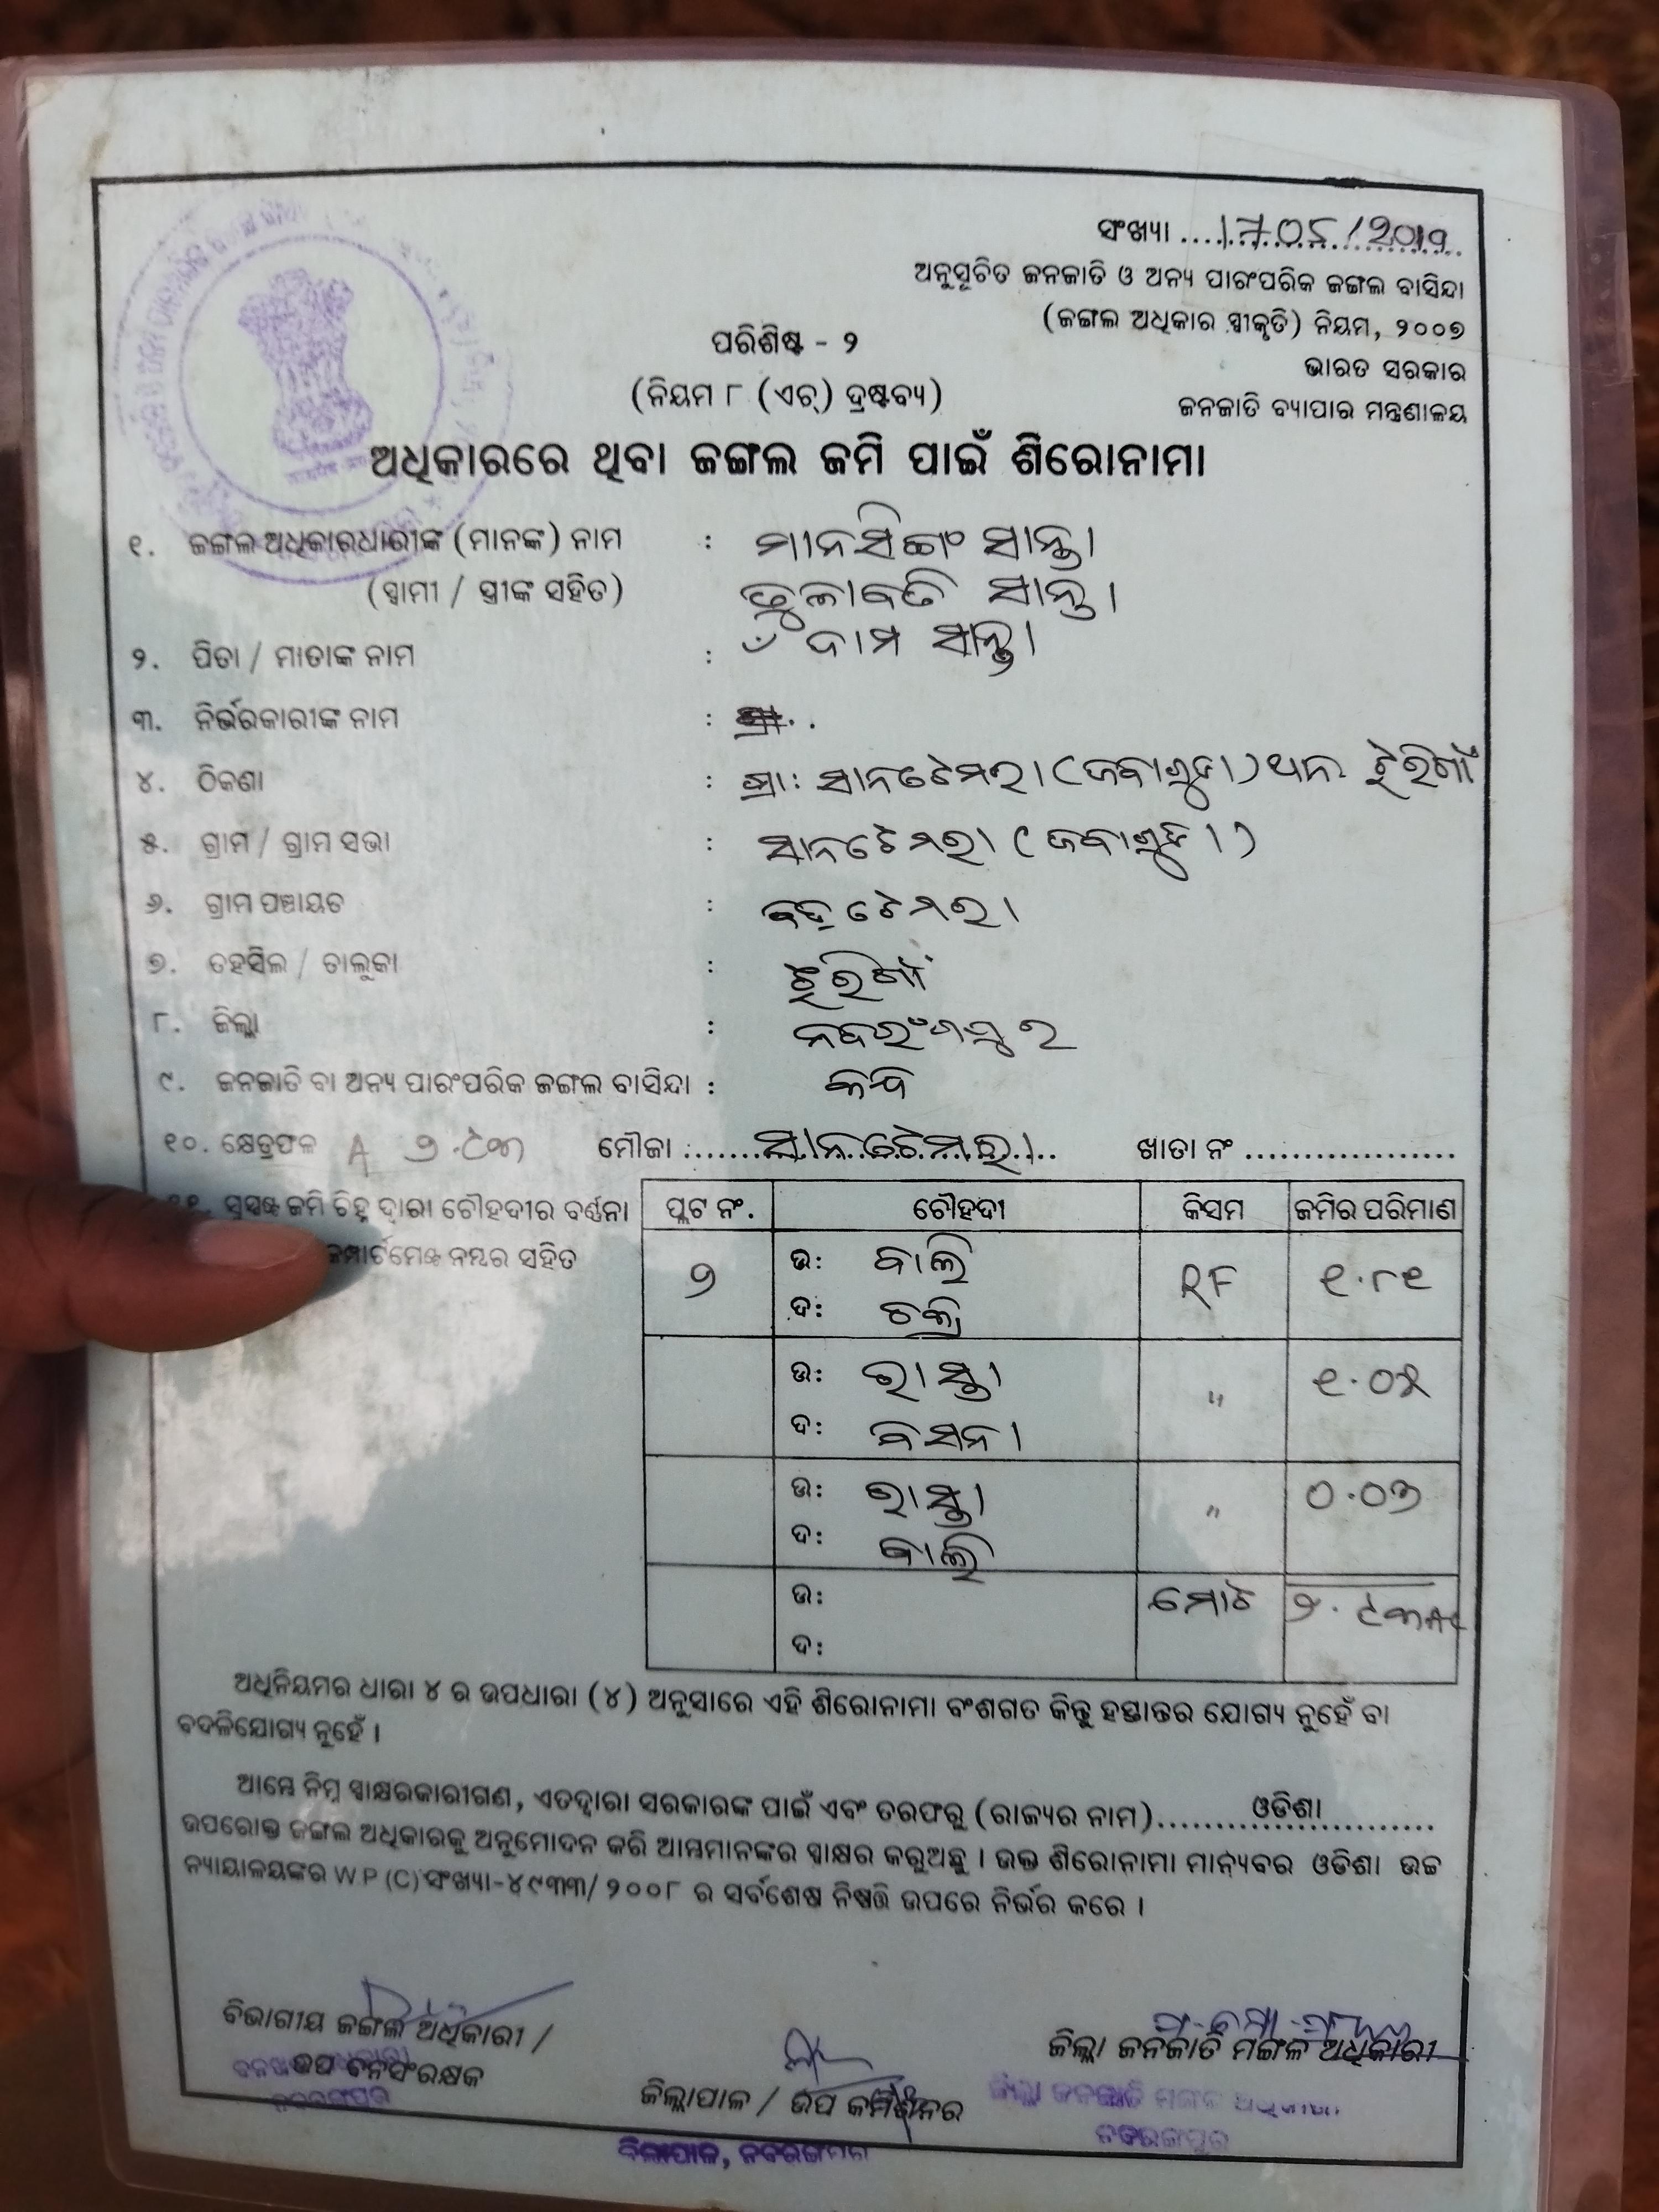 ସଂଖ୍ୟା
ଅନୁସୂଚିତ ଜନଜାତି ଓ ଅନ୍ୟ ପାରଂପରିକ ଜଙ୍ଗଲ ବାସିନ୍ଦା
(ଜଙ୍ଗଲ ଅଧିକାର ସ୍ଵୀକୃତି) ନିୟମ, ୨୦୦୭
ପରିଶିଷ୍ଟ - ୨
ଭାରତ ସରକାର
(ନିୟମ ୮ (ଏଚ୍) ଦ୍ରଷ୍ଟବ୍ୟ)
ଜନଜାତି ବ୍ୟାପାର ମନ୍ତ୍ରଣାଳୟ
ଅଧିକାରରେ ଥିବା ଜଙ୍ଗଲ ଜମି ପାଇଁ ଶିରୋନାମା
୧. ଜଙ୍ଗଲ ଅଧିକାରଧାରୀଙ୍କ (ମାନଙ୍କ) ନାମ : ସାନ୍ତା
(ସ୍ଵାମୀ / ସ୍ତ୍ରୀଙ୍କ ସହିତ) ସାନ୍ତା
୨. ପିତା / ମାତାଙ୍କ ନାମ : ଦାମ ସାନ୍ତା
୩. ନିର୍ଭରକାରୀଙ୍କ ନାମ :
୪. ଠିକଣା : ସାନଟେମରା ଝରିଗାଁ
୫. ଗ୍ରାମ / ଗ୍ରାମ ସଭା : ସାନଟେମରା
୬. ଗ୍ରାମ ପଞ୍ଚାୟତ : ବଡ଼ଟେମରା
୭. ତହସିଲ / ତାଲୁକା : ଝରିଗାଁ
୮. ଜିଲ୍ଲା : ନବରଂଗପୁର
୯. ଜନଜାତି ବା ଅନ୍ୟ ପାରଂପରିକ ଜଙ୍ଗଲ ବାସିନ୍ଦା :
୧୦. କ୍ଷେତ୍ରଫଳ A ମୌଜା : ସାନଟେମରା ଖାତା ନଂ
ସୁସ୍ପଷ୍ଟ ଜମି ଚିହ୍ନ ଦ୍ଵାରା ଚୌହଦୀର ବର୍ଣ୍ଣନା
କମ୍ପାର୍ଟମେଣ୍ଟ ନମ୍ବର ସହିତ
ପ୍ଲଟ ନଂ. ଚୌହଦୀ କିସମ ଜମିର ପରିମାଣ
୨ ଉ: ବାଲି RF ୧.୮୧
ଦ: ଚକ୍ରି
ଉ: ରାସ୍ତା " ୧.୦୫
ଦ: ବିସନା
ଉ: ରାସ୍ତା " ୦.୦୭
ଦ: ବାଲି
ଉ: ମୋଟ
ଦ:
ଅଧିନିୟମର ଧାରା ୪ ର ଉପଧାରା (୪) ଅନୁସାରେ ଏହି ଶିରୋନାମା ବଂଶଗତ କିନ୍ତୁ ହସ୍ତାନ୍ତର ଯୋଗ୍ୟ ନୁହେଁ ବା
ବଦଳିଯୋଗ୍ୟ ନୁହେଁ ।
ଆମ୍ଭେ ନିମ୍ନ ସ୍ଵାକ୍ଷରକାରୀଗଣ, ଏତଦ୍ଵାରା ସରକାରଙ୍କ ପାଇଁ ଏବଂ ତରଫରୁ (ରାଜ୍ୟର ନାମ) ଓଡିଶା
ଉପରୋକ୍ତ ଜଙ୍ଗଲ ଅଧିକାରକୁ ଅନୁମୋଦନ କରି ଆମ୍ଭମାନଙ୍କର ସ୍ଵାକ୍ଷର କରୁଅଛୁ । ଉକ୍ତ ଶିରୋନାମା ମାନ୍ୟବର ଓଡିଶା ଉଚ୍ଚ
ନ୍ୟାୟାଳୟଙ୍କର W.P (C) ସଂଖ୍ୟା-୪୯୩୩/ ୨୦୦୮ ର ସର୍ବଶେଷ ନିଷ୍ପତ୍ତି ଉପରେ ନିର୍ଭର କରେ ।
ବିଭାଗୀୟ ଜଙ୍ଗଲ ଅଧିକାରୀ /
ଉପ ବନସଂରକ୍ଷକ
ନବରଙ୍ଗପୁର
ଜିଲ୍ଲାପାଳ / ଉପ କମିଶନର
ଜିଲ୍ଲାପାଳ, ନବରଙ୍ଗପୁର
ଜିଲ୍ଲା ଜନଜାତି ମଙ୍ଗଳ ଅଧିକାରୀ
ଜିଲ୍ଲା ଜନଜାତି ମଙ୍ଗଳ ଅଧିକାରୀ
ନବରଙ୍ଗପୁର